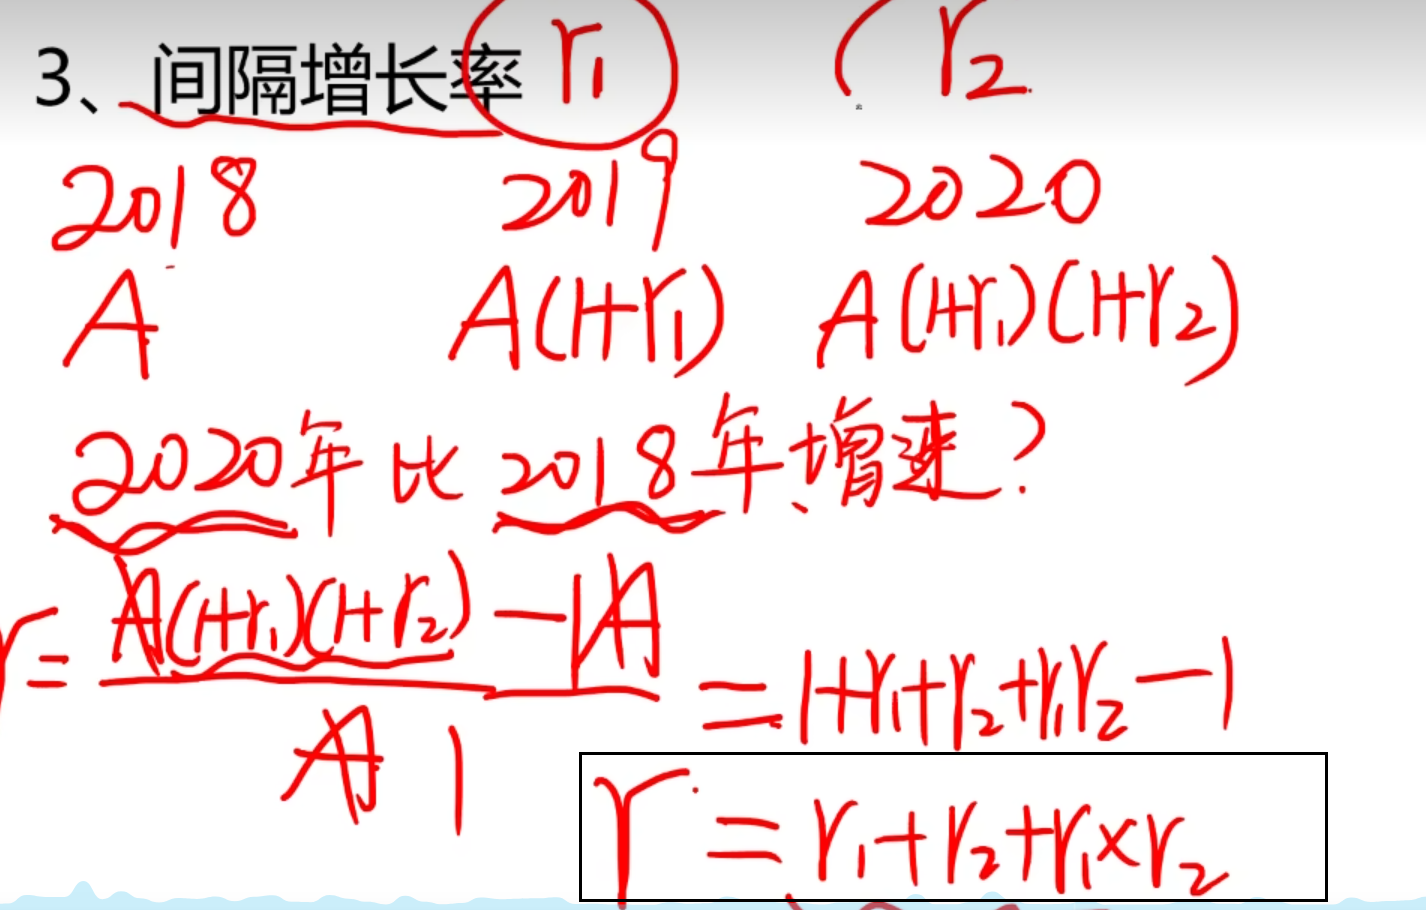 3、间隔增长率 r₁ r₂
2018 2019 2020
A A(1+r₁) A(1+r₁)(1+r₂)
2020年比2018年增速?
r = A(1+r₁)(1+r₂) - 1A
A 1
= 1+r₁+r₂+r₁r₂-1
r = r₁+r₂+r₁×r₂